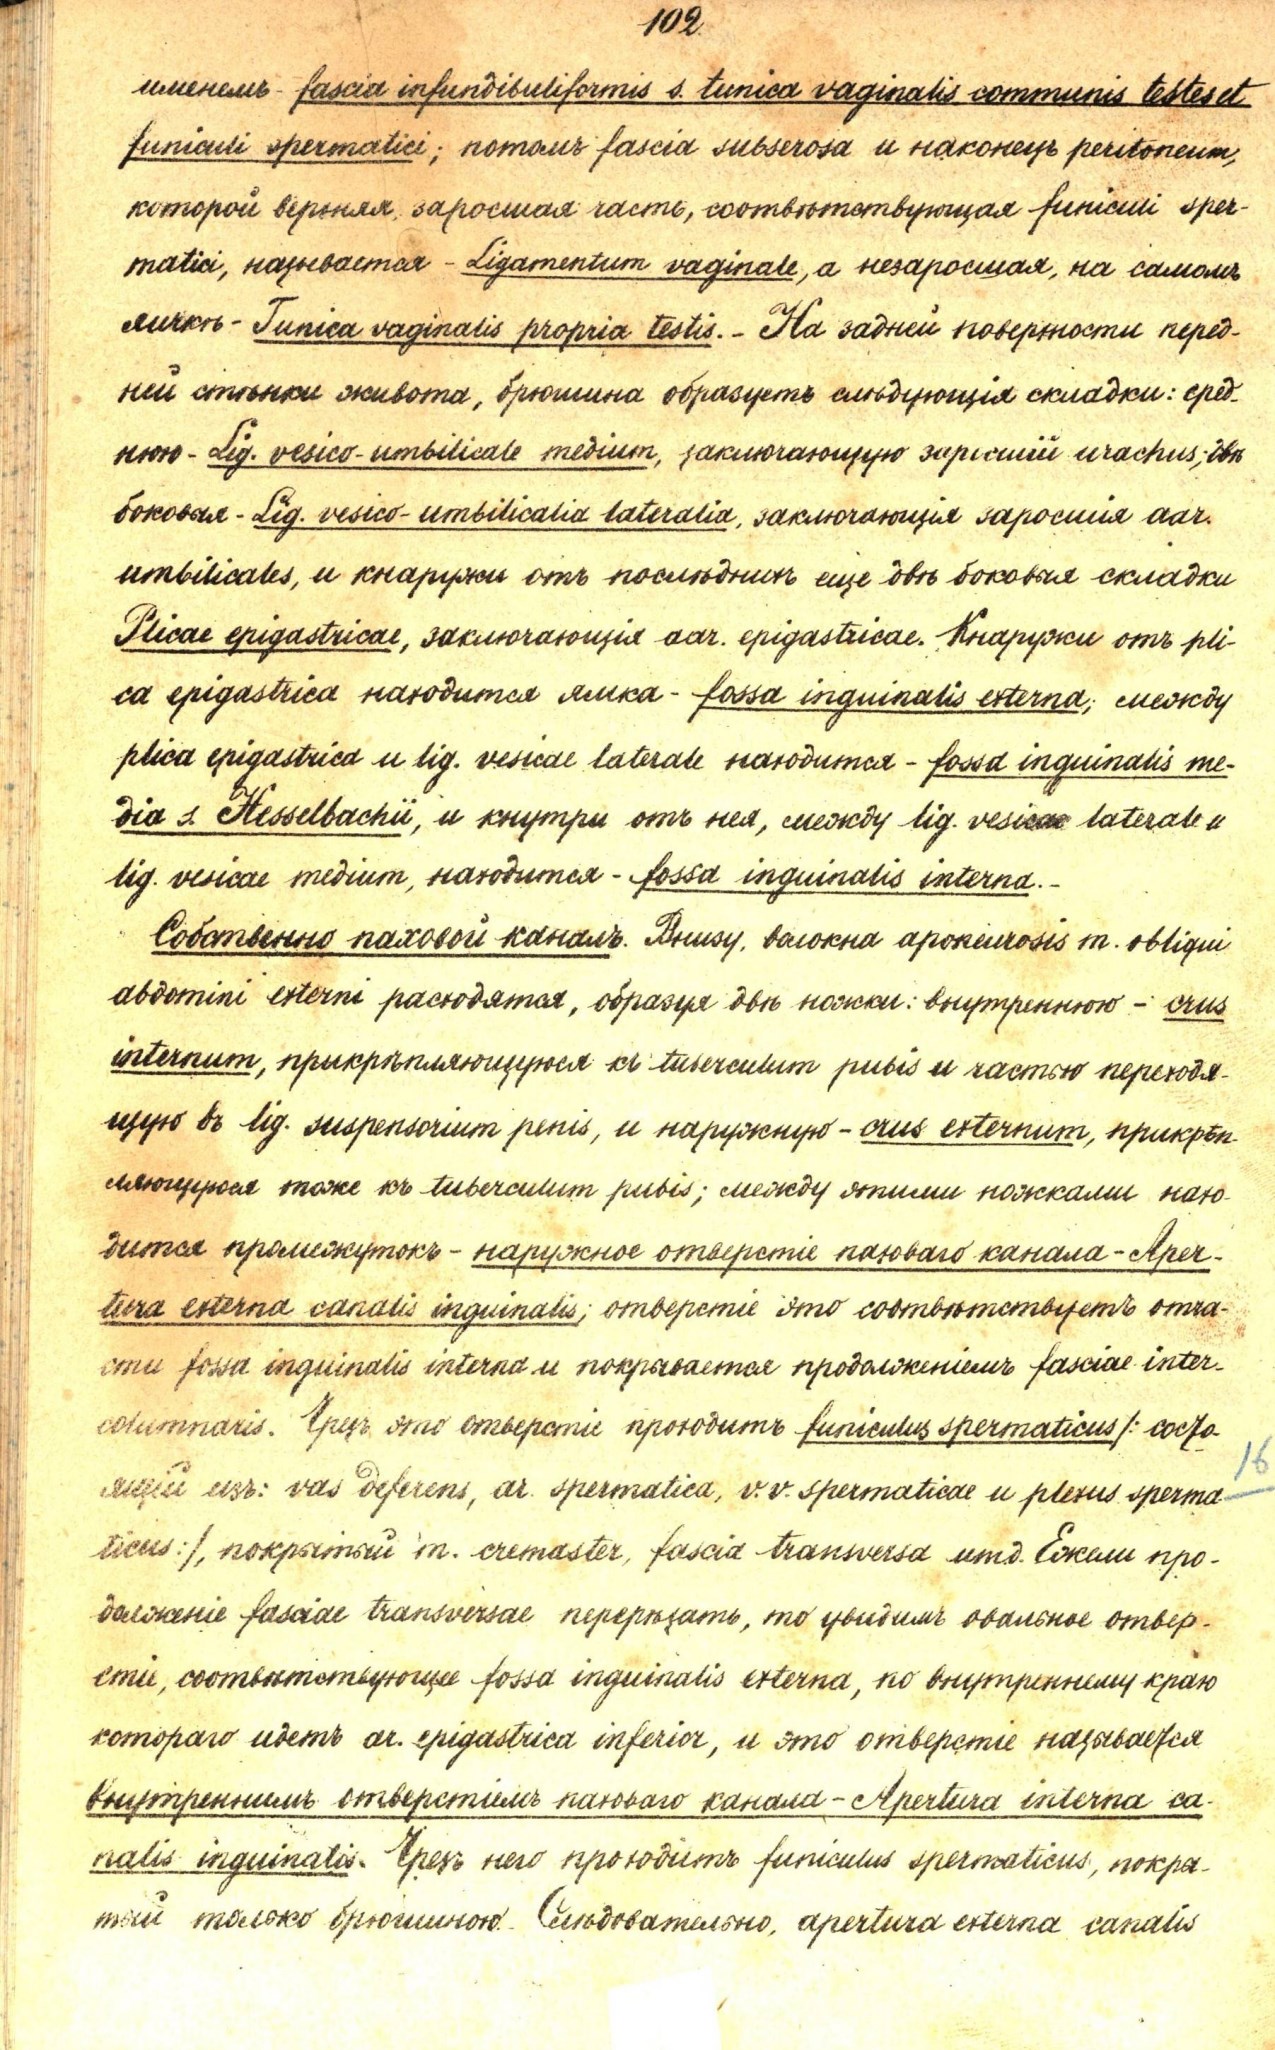 102
именемъ - fascia infundibuliformis s. tunica vaginalis communis testes et
funiculi spermatici; потомъ fascia subserosa и наконецъ peritoneum,
которой верхняя заросшая часть, соотвѣтствующая funiculi sper-
matici, называется - Ligamentum vaginale, а незаросшая, на самомъ
яичкѣ - Tunica vaginalis propria testis. - На задней поверхности перед-
ней стѣнки живота, брюшина образуетъ слѣдующія складки: сред-
нюю - Lig. vesico-umbilicale medium, заключающую заросшій urachus; двѣ
боковыя - Lig. vesico-umbilicalia lateralia, заключающія заросшія aar.
umbilicales, и кнаружи отъ послѣднихъ еще двѣ боковыя складки
Plicae epigastricae, заключающія aar. epigastricae. Кнаружи отъ pli-
ca epigastrica находится ямка - fossa inguinalis externa; между
plica epigastrica и lig. vesicae laterale находится - fossa inguinalis me-
dia s. Hesselbachii, и кнутри отъ нея, между lig. vesicae laterale и
lig. vesicae medium, находится - fossa inguinalis interna. -
Собственно паховой каналъ. Внизу, волокна aponeurosis m. obliqui
abdomini externi расходятся, образуя двѣ ножки: внутреннюю - crus
internum, прикрѣпляющуюся къ tuberculum pubis и частью переходя-
щую въ lig. suspensorium penis, и наружную - crus externum, прикрѣп-
ляющуюся тоже къ tuberculum pubis; между этими ножками нахо-
дится промежутокъ - наружное отверстіе паховаго канала - Aper-
tura externa canalis inguinalis; отверстіе это соотвѣтствуетъ отча-
сти fossa inguinalis interna и покрывается продолженіемъ fasciae inter-
columnaris. Чрезъ это отверстіе проходитъ funiculus spermaticus /: состо-
ящій изъ: vas deferens, ar. spermatica, v.v. spermaticae и plexus sperma-
16
ticus :/, покрытый m. cremaster, fascia transversa итд. Ежели про-
долженіе fasciae transversae перерѣзать, то увидимъ овальное отвер-
стіе, соотвѣтствующее fossa inguinalis externa, по внутреннему краю
котораго идетъ ar. epigastrica inferior, и это отверстіе называется
внутреннимъ отверстіемъ паховаго канала - Apertura interna ca-
nalis inguinalis. Чрезъ него проходитъ funiculus spermaticus, покры-
тый только брюшиною. Слѣдовательно, apertura externa canalis